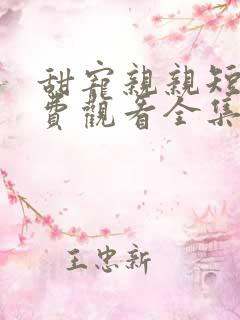 甜寵親親短
費觀看全集
王忠新